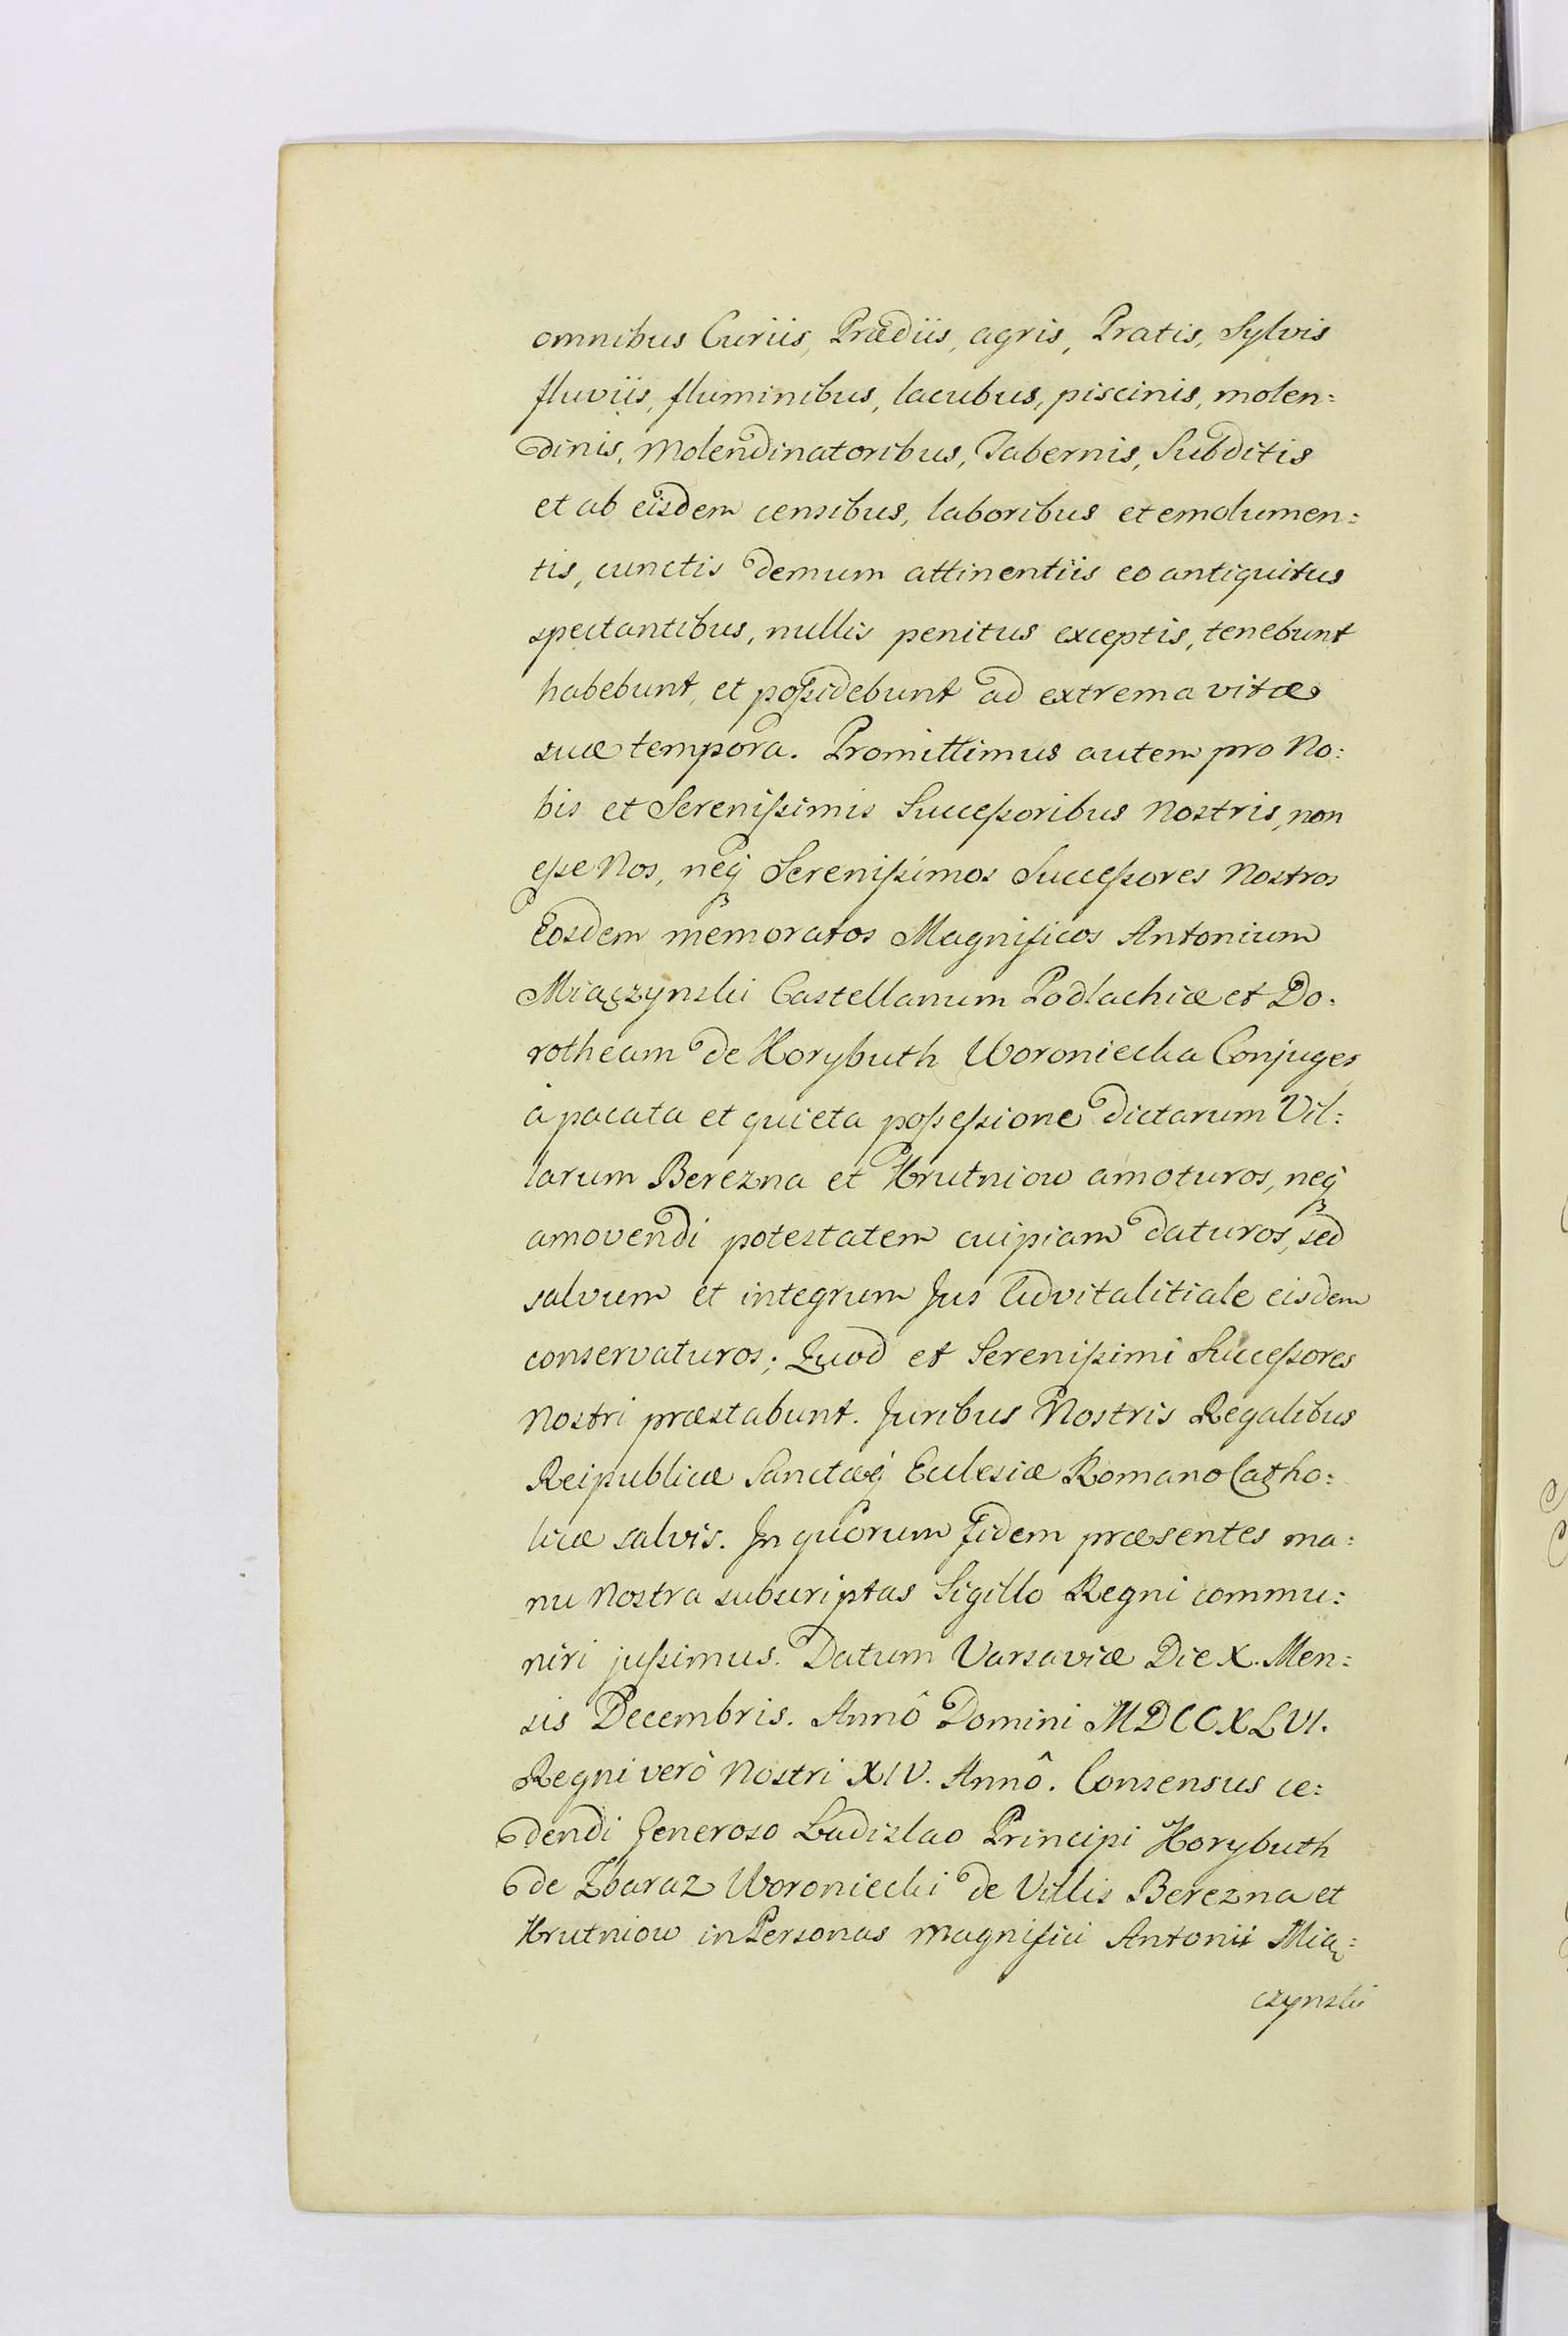 omnibus Curiis, Prædiis, agris, Pratis, Sylvis
fluviis, fluminibus, lacubus, piscinis, molen=
dinis, Molendinatoribus, Tabernis, Subditis
et ab eisdem censibus, laboribus et emolumen=
tis, cunctis demum attinentiis eo antiquitus
spectantibus, nullis penitus exceptis, tenebunt
habebunt, et poßidebunt ad extrema vitæ
suæ tempora. Promittimus autem pro No=
bis et Serenißimis Succeßoribus Nostris, non
eße Nos, neq́ Serenißimos Succeßores Nostros
Eosdem memoratos Magnificos Antonium
Miączynski Castellanum Podlachiæ et Do=
rotheam de Korybuth Woroniecka Conjuges
à pacata et quieta poßeßione dictarum Vil=
larum Berezna et Krutniow amoturos, neq́
amovendi potestatem cuipiam daturos, sed
salvum et integrum Jus Advitalitiale eisdem
conservaturos; Quod et Serenißimi Succeßores
Nostri præstabunt. Juribus Nostris Regalibus
Reipublicæ Sanctæq́ Ecclesiæ Romano Catho=
licæ salvis. In quorum Fidem præsentes ma=
nu Nostra subscriptas Sigillo Regni commu=
niri jußimus. Datum Varsaviæ Die X. Men=
sis Decembris. Annô Domini MDCCXLVI.
Regni verò Nostri XIV. Annô. Consensus ce=
dendi Generoso Ladislao Principi Korybuth
de Zbaraz Woroniecki de Villis Berezna et
Krutniow in Personas Magnifici Antonii Mią=
czynski